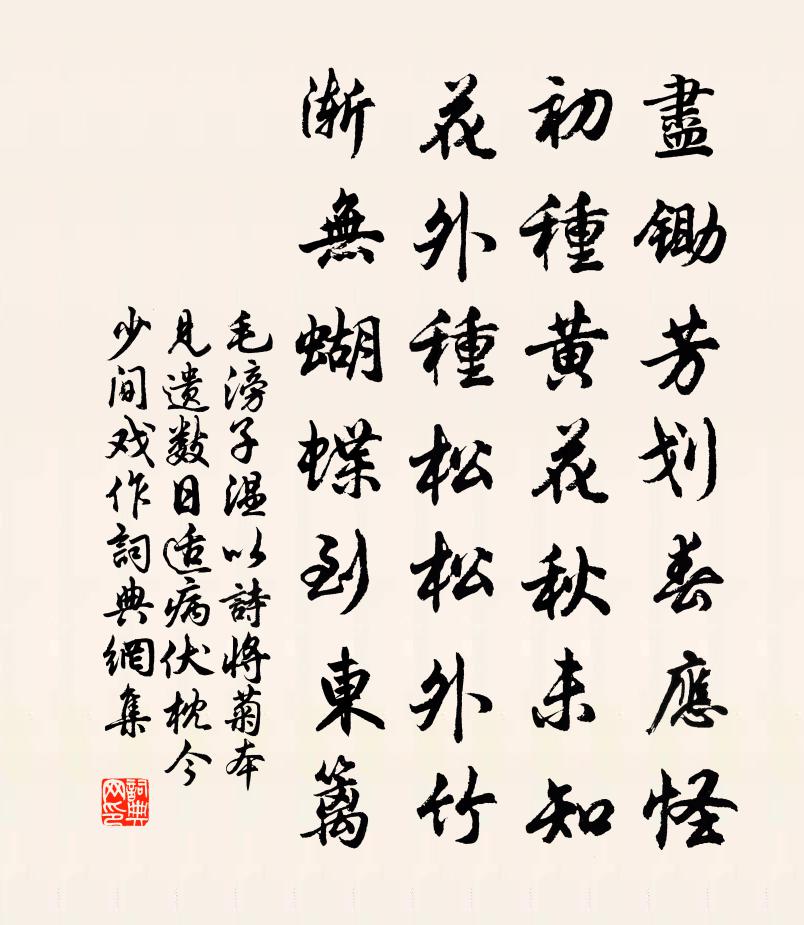 盡鋤芳划春應怪
初種黄花秋未知
花外種松松外竹
漸無蝴蝶到東籬
毛滂子温以詩將菊本
見遗数日适病伏枕今
少间戏作詞典網集
詞典网印